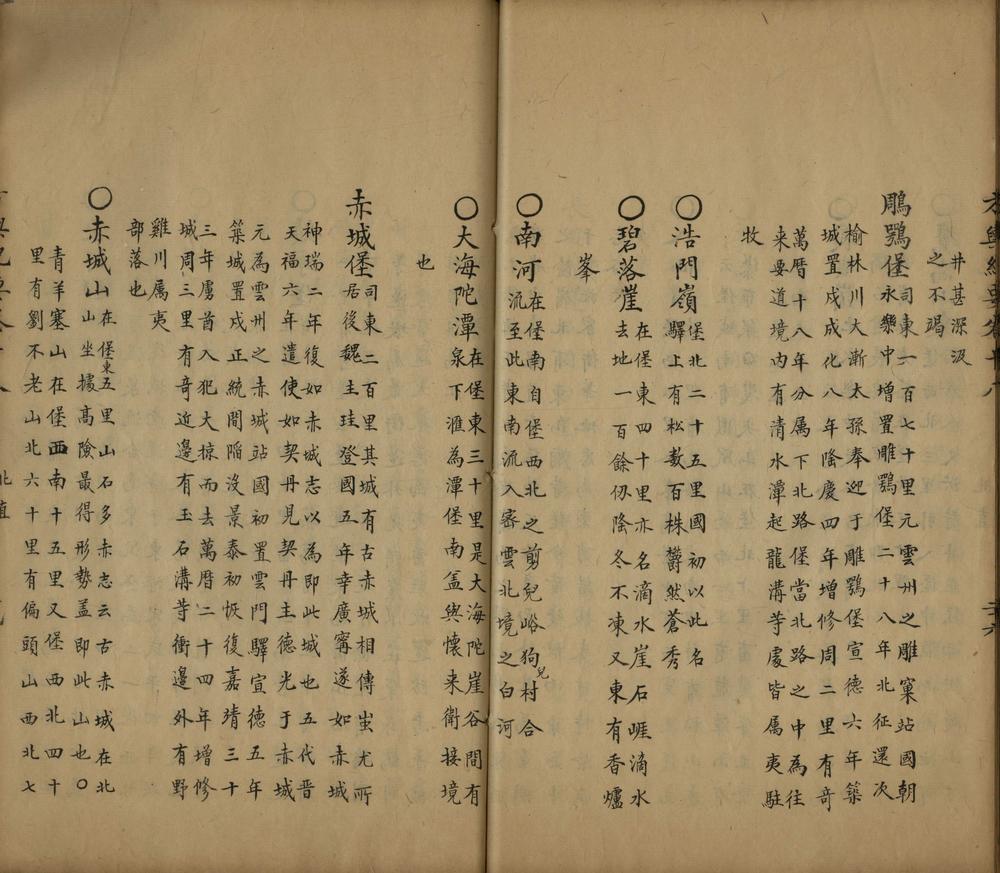 井甚深汲
之不竭
鵰鶚堡司東一百七十里元雲州之雕窠站國朝
永樂中增置雕鶚堡二十八年北征還次
榆林川大漸太孫奉迎于雕鶚堡宣德六年築
城置戍成化八年隆慶四年增修周二里有奇
萬曆十八年分属下北路堡當北路之中為往
来要道境内有清水潭起龍溝䓁處皆属夷駐
牧
〇浩門嶺堡北二十五里國初以此名
驛上有松数百株欝然蒼秀
〇碧落崖在堡東四十里亦名滴水崖石崕滴水
去地一百餘仭隆冬不凍又東有香爐
峯
〇南河在堡南自堡西北之剪兒峪狗兒村合
流至此東南流入宻雲北境之白河
〇大海陀潭在堡東三十里是大海陀崖谷間有
泉下滙為潭堡南盖與懷来衛接境
也
赤城堡司東二百里其城有古赤城相傳蚩尤所
居後魏主珪登國五年幸廣甯遂如赤城
神瑞二年復如赤城志以為即此城也五代晋
天福六年遣使如契丹見契丹主德光于赤城
元為雲州之赤城站國初置雲門驛宣德五年
築城置戍正統間陷没景泰初恢復嘉靖三十
三年虜酋入犯大掠而去萬曆二十四年增修
城周三里有奇近邊有玉石溝䓁衝邊外有野
雞川属夷
部落也
〇赤城山在堡東五里山石多赤志云古赤城在北
山坐據髙險最得形勢盖即此山也〇
青羊塞山在堡西南十五里又堡西北四十
里有劉不老山北六十里有偏頭山西北七